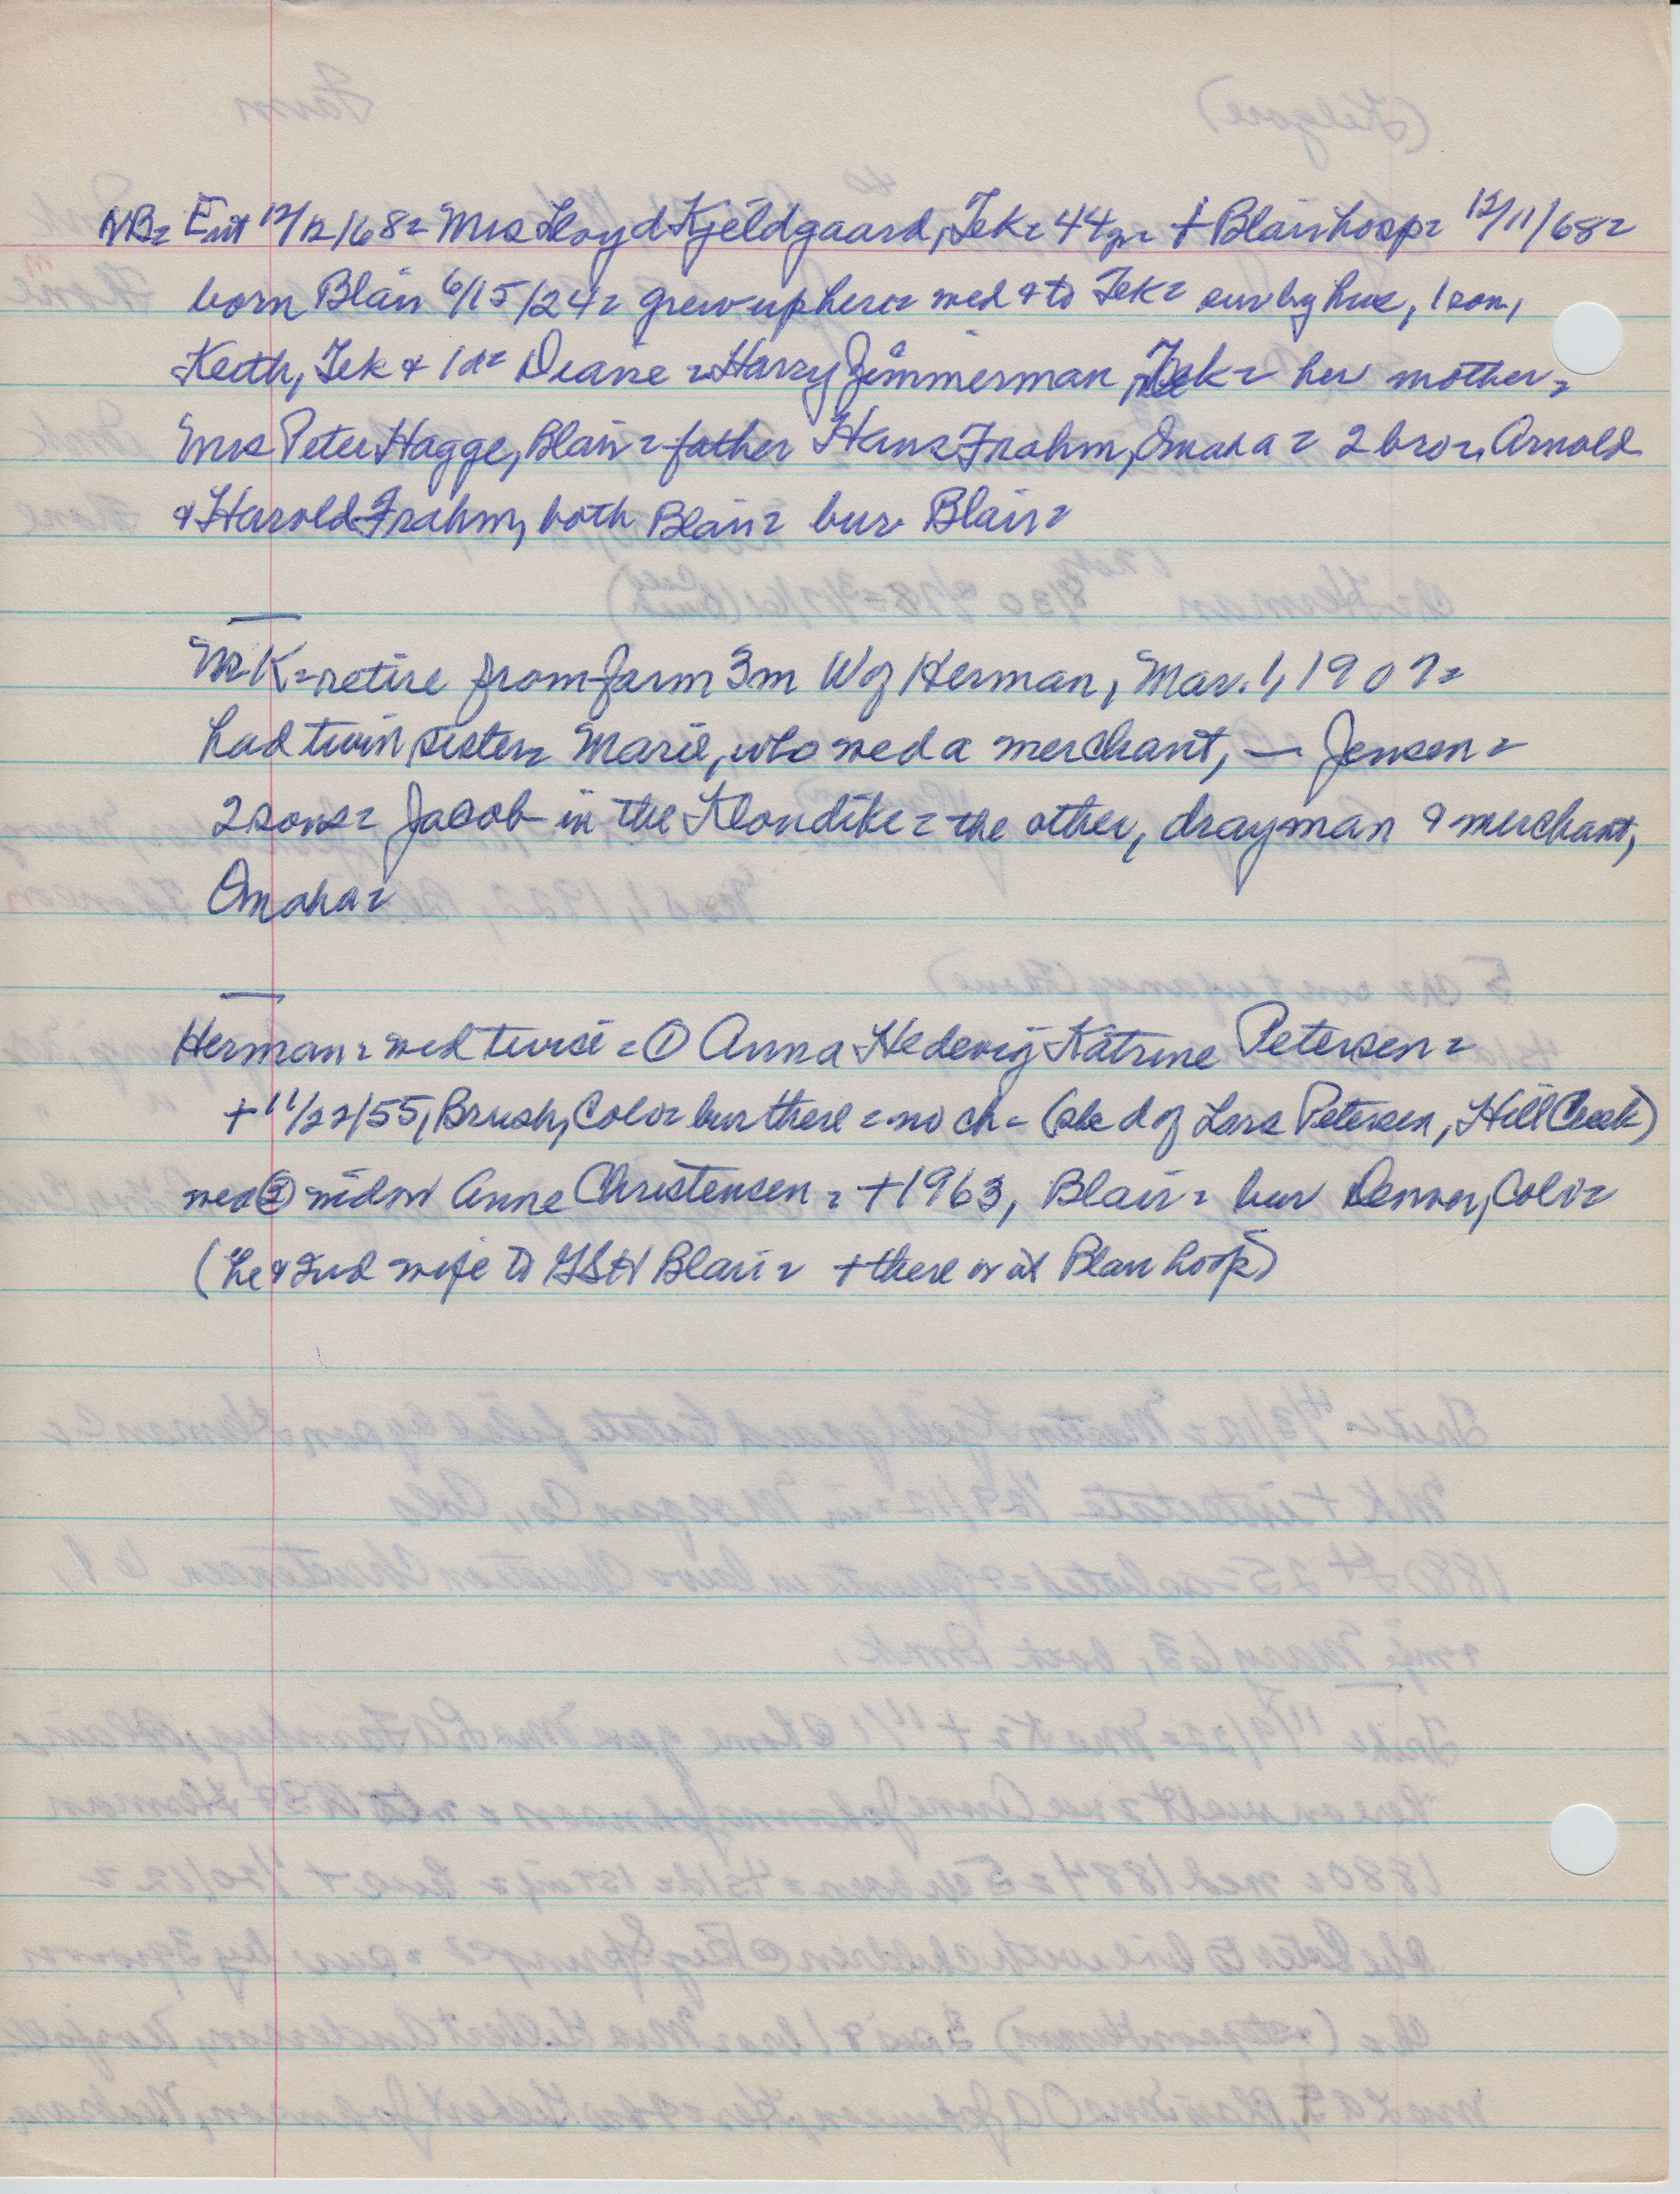 NB= Ent 12/12/68= Mrs Lloyd Kjeldgaard, Tek= 44yr= + Blair hosp= 12/11/68=
born Blair 6/15/24= grew up here= wed & to Tek= sur by hus, 1 son,
Keith, Tek & 1 d= Diane = Harry Zimmerman, Tek= her mother=
Mrs Peter Hagge, Blair= father Hans Frahm, Omaha= 2 bro=, Arnold
& Harold Frahm, both Blair= bur Blair=
MK= retire from farm 3m W of Herman, Mar. 1, 1907=
had twin sister= Marie, who wed a merchant, — Jensen=
2 sons= Jacob in the Klondike= the other, drayman & merchant,
Omaha=
Herman= wed twice= ① Anna Hedevig Katrine Petersen=
+ 11/22/55, Brush, Colo= bur there= no ch= (she d of Lars Petersen, Hill Creek)
wed ② widow Anne Christensen= + 1963, Blair= bur Denver, Colo=
(he & 2nd wife to Blair= + there or at Blair hosp)